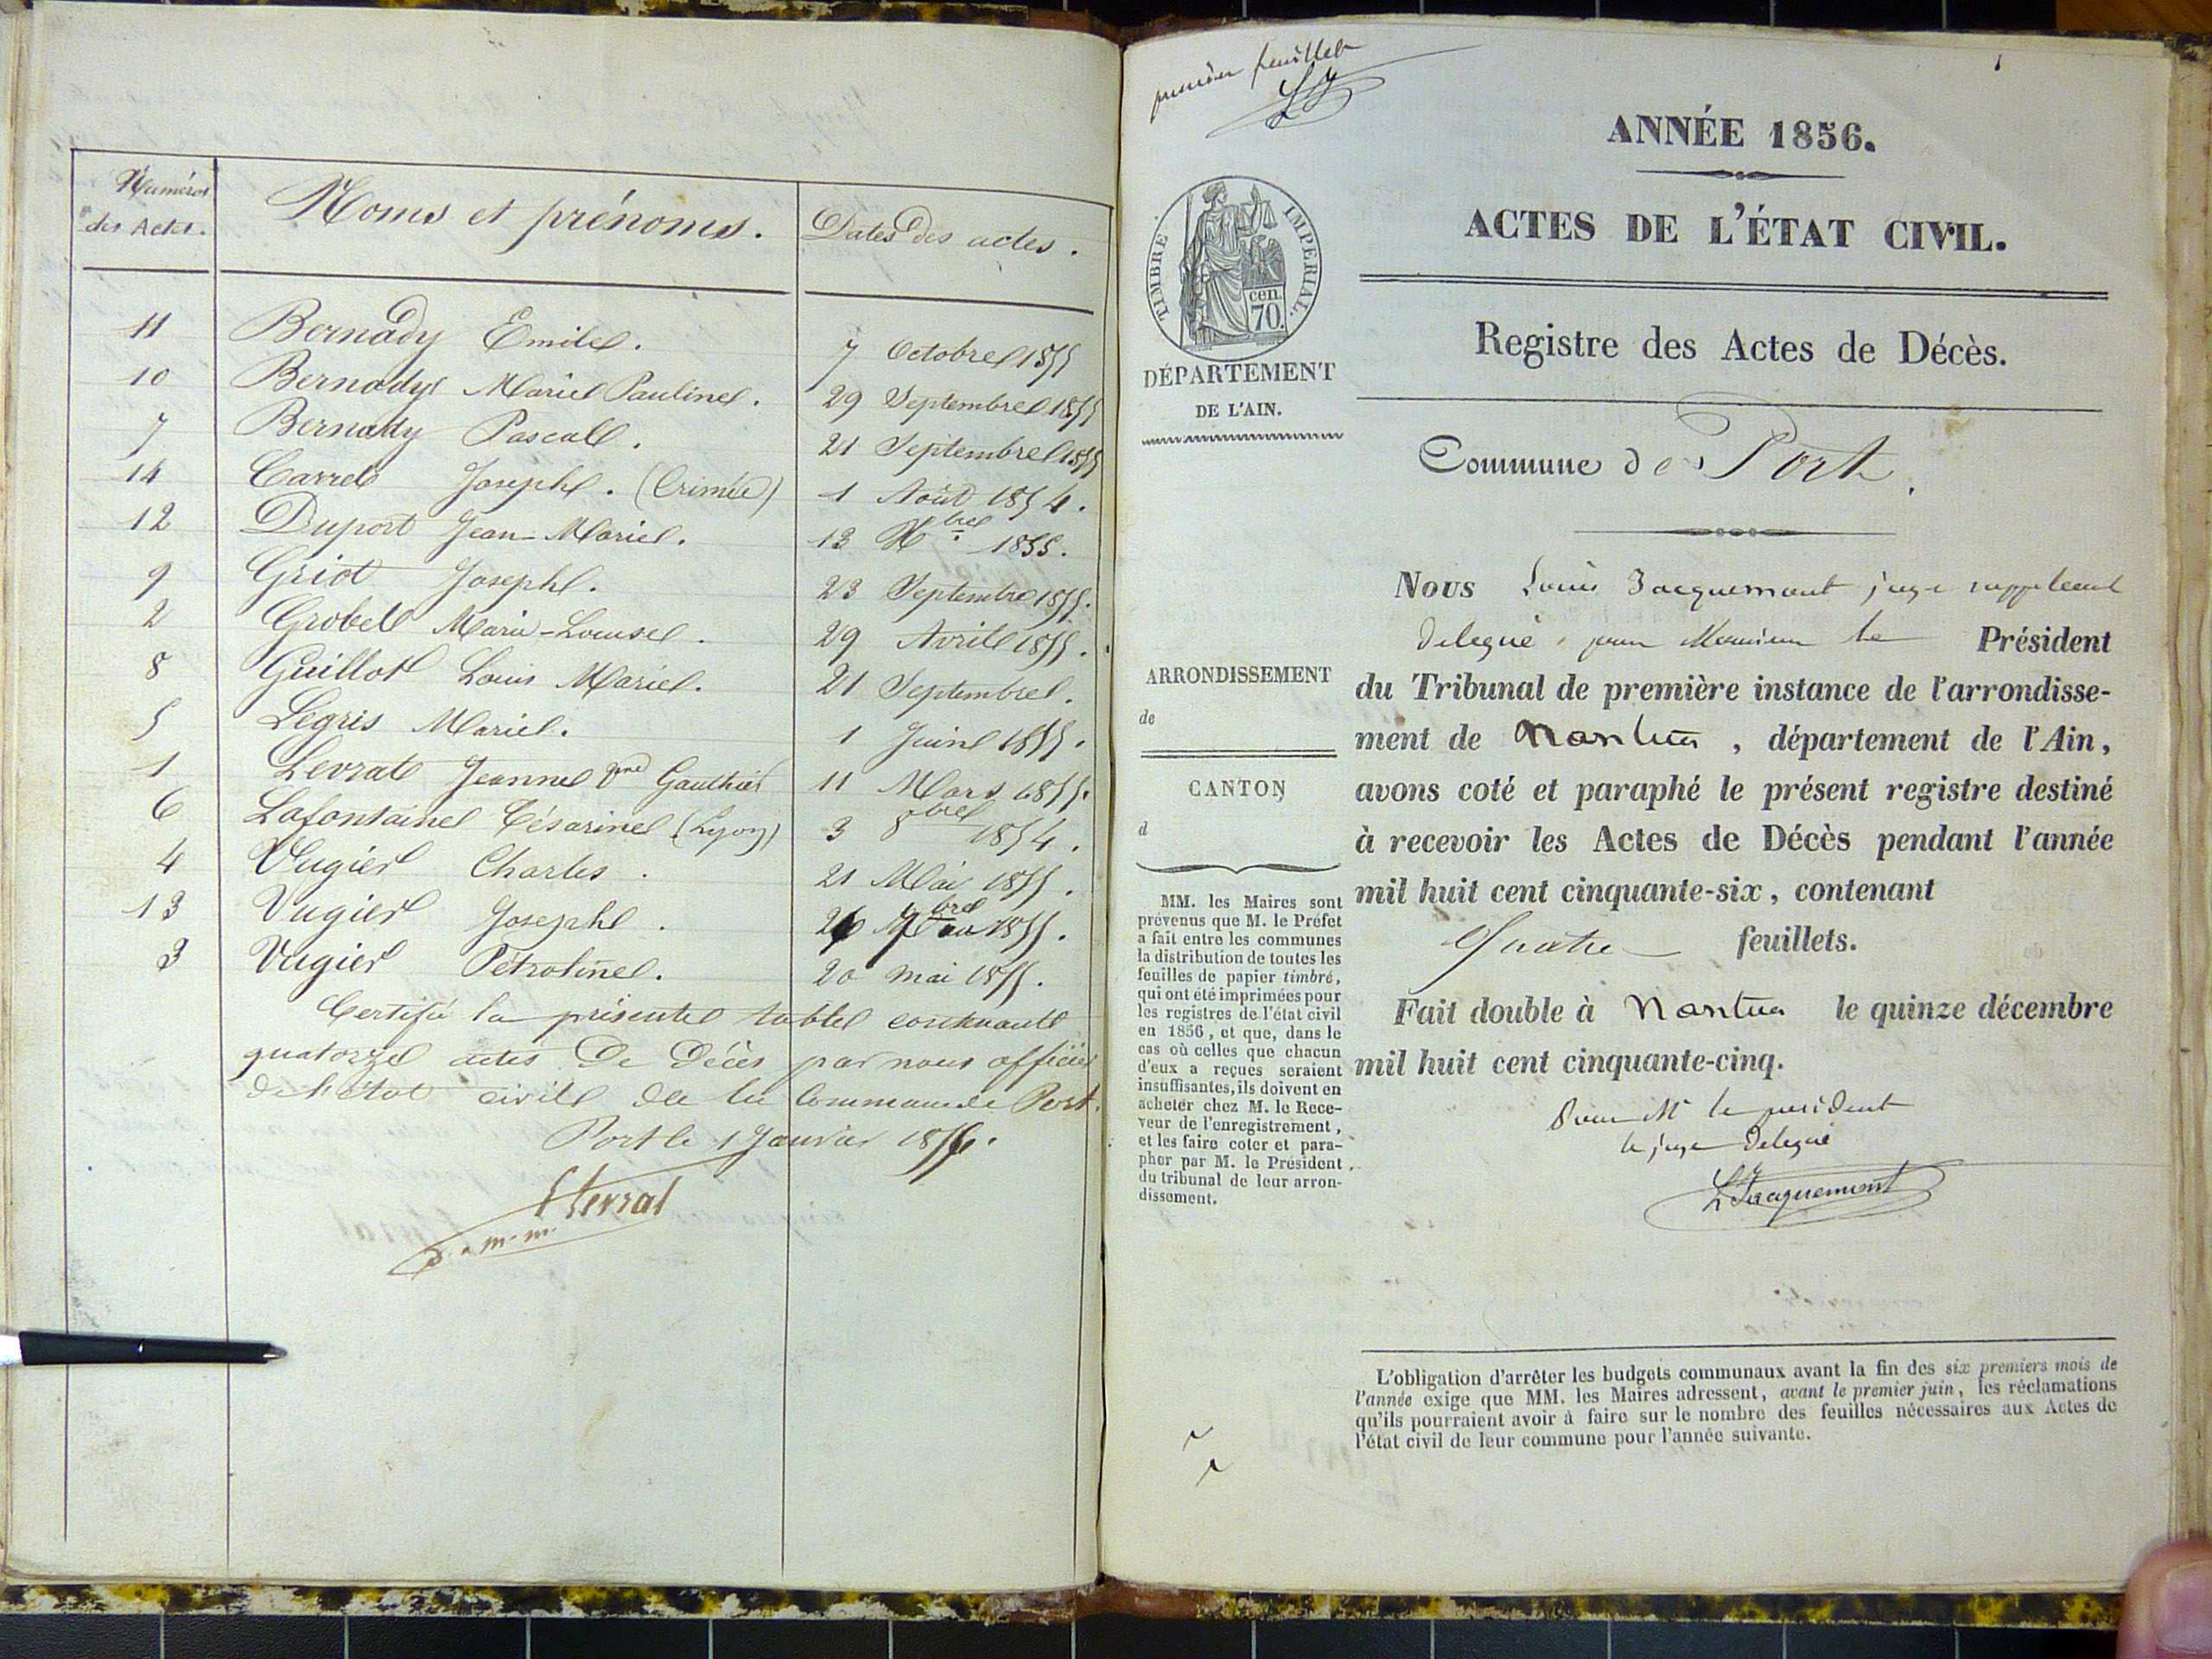 Numéros des Actes.
Noms et prénoms.
Dates des actes.
11 Bernady Emile. 7 Octobre 1855
10 Bernady Marie Pauline. 29 Septembre 1855
7 Bernady Pascal. 21 Septembre 1855
14 Carret Joseph. (Crimée) 1 Août 1854.
12 Duport Jean-Marie. 13 Xbre 1855.
9 Griot Joseph. 23 Septembre 1855.
2 Grobel Marie-Louise. 29 Avril 1855.
8 Guillot Louis Marie. 21 Septembre.
5 Légris Marie. 1 Juin 1855.
1 Levrat Jeanne Vve Gauthier 11 Mars 1855.
6 Lafontaine Césarine (Lyon) 3 8bre 1854.
4 Vugier Charles. 21 Mai 1855.
13 Vugier Joseph. 26 1855.
3 Vugier Pétroline. 20 mai 1855.
Certifié la présente table contenant
quatorze actes De Décès par nous officier
de l'état civil de la Commune de Port.
Port le 1 Janvier 1856.
Levrat
m. m.
premier feuillet
LJ
1
ANNÉE 1856.
ACTES DE L'ÉTAT CIVIL.
TIMBRE IMPERIAL.
cen.
70.
DÉPARTEMENT
DE L'AIN.
Registre des Actes de Décès.
Commune de Port.
Nous Louis Jacquemont juge suppléant
délégué par Monsieur le Président
du Tribunal de première instance de l'arrondisse-
ment de Nantua, département de l'Ain,
avons coté et paraphé le présent registre destiné
à recevoir les Actes de Décès pendant l'année
mil huit cent cinquante-six, contenant
Quatre feuillets.
Fait double à Nantua le quinze décembre
mil huit cent cinquante-cinq.
Pour Mr le président
le juge délégué
L Jacquemont
ARRONDISSEMENT
de
CANTON
d
MM. les Maires sont
prévenus que M. le Préfet
a fait entre les communes
la distribution de toutes les
feuilles de papier timbré,
qui ont été imprimées pour
les registres de l'état civil
en 1856, et que, dans le
cas où celles que chacun
d'eux a reçues seraient
insuffisantes, ils doivent en
acheter chez M. le Rece-
veur de l'enregistrement,
et les faire coter et para-
pher par M. le Président
du tribunal de leur arron-
dissement.
L'obligation d'arrêter les budgets communaux avant la fin des six premiers mois de
l'année exige que MM. les Maires adressent, avant le premier juin, les réclamations
qu'ils pourraient avoir à faire sur le nombre des feuilles nécessaires aux Actes de
l'état civil de leur commune pour l'année suivante.